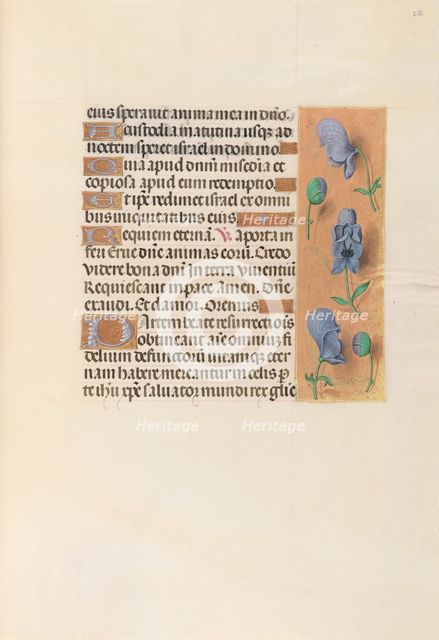 eius speravit anima mea in dño.
A custodia matutina usq̃ ad
noctem speret israel in domino.
Quia apud dñm mĩcdia et
copiosa apud eum redemptio.
Et ip̃e redimet israel ex omni
bus iniquitatibus eius.
Requiem eternã. V. a porta in
feri Erue dñe animas eorũ. Credo
videre bona dñi In terra viventiũ
Requiescant in pace Amen. Dñe
exaudi. Et clamor. Oremus.
Partem beate resurrectiõis
obtineant añe omniũ fi
delium defunctorũ vitam q̃ eter
nam habere mereantur in celis p̃
te ihũ xp̃e salvator mundi rex gl̃ie
Heritage
Heritage
Heritage
Heritage
Heritage
Heritage